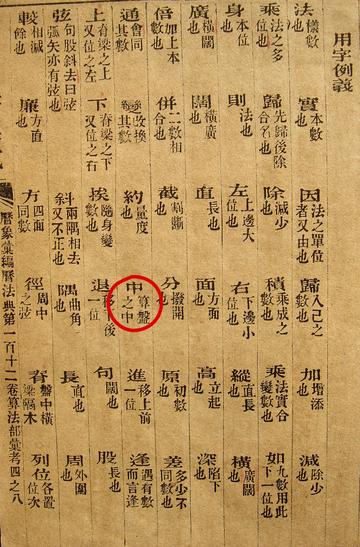 用字例義
法樣數 實本數也 因法之單位者又由也 歸入己之數也 加增添 減除少也
乘法之多位也 歸先歸後除合名也 除減少也 積乘成之數也 乘法實合變數也 如九數用此下一位也
身本位也 則法也 左上邊大位也 右下邊小位也 縱直長也 橫廣闊也
廣橫闊 闊橫廣也 直長也 面方面也 高立起也 深陷下也
倍加上本數也 併二數相合也 截也 分撥開也 原初數也 差多少不同也
通會同其數 改換其數也 約量度也 中算盤之中 進移上前一位 逢遇有數而言逢
上脊梁之上又位之左 下脊梁之下又位之右 挨隨身變數也 退移下後一位 句闊也 股長也
弦句股斜去曰弦弧矢亦有弦也 斜兩隅相去又不正也 隅曲角也 長直也 周外圍也
較相減餘也 廉方直也 方四面同數 徑周中之弦 脊盤中橫梁隔木 列位各置位次
曆象彙編曆法典第一百十二卷算法部彙考四之八